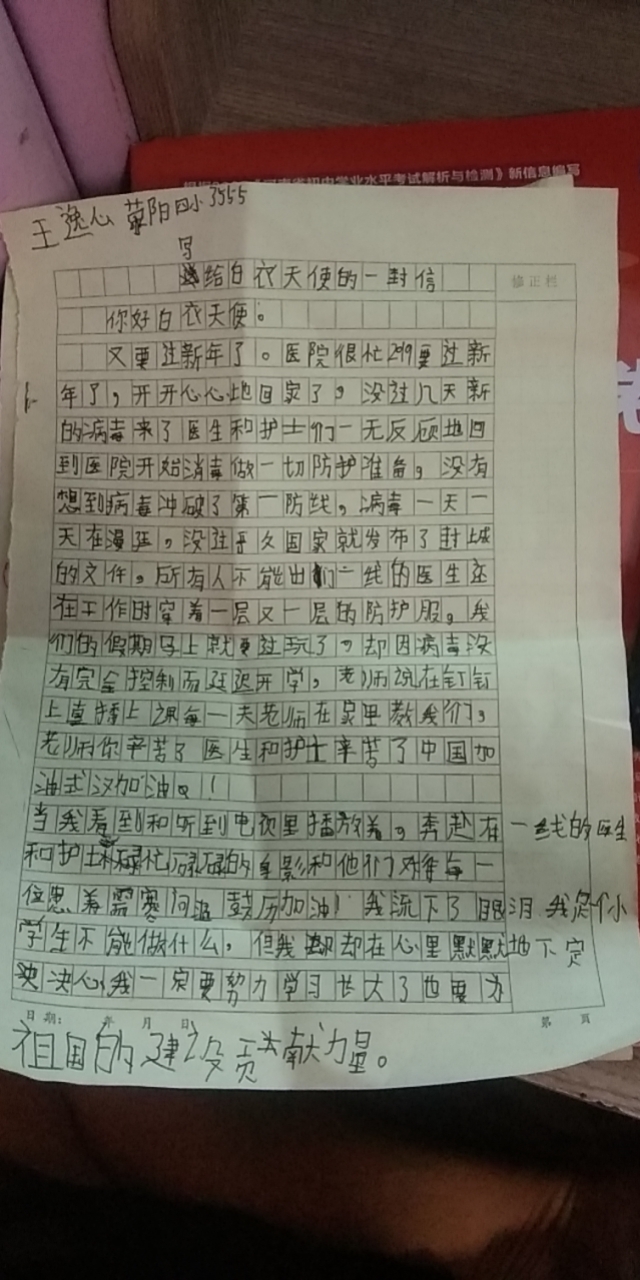 初中学业水平考试解析与检测》新信息编写
王逸心 荥阳四小 3555
写
给白衣天使的一封信
修正栏
你好白衣天使。
又要过新年了。医院很忙 要过新
年了,开开心心地回家了。没过几天新
的病毒来了医生和护士们一无反顾地回
到医院开始消毒做一切防护准备,没有
想到病毒冲破了第一防线,病毒一天一
天在漫延,没过多久国家就发布了封城
的文件。所有人不能出们一线的医生还
在工作时穿着一层又一层的防护服。我
们的假期马上就要过玩了。却因病毒没
有完全控制而延迟开学,老师说在钉钉
上直播上课每一天老师在家里教我们,
老师你辛苦了医生和护士辛苦了中国加
油武汉加油。!
当我看到和听到电视里播放着,奔赴在一线的医生
和护士 碌忙碌碌的身影和他们对待每一
位患者需寒问暖鼓历加油!我流下了眼泪 我是个小
学生不能做什么,但我 却在心里默默地下定
决心,我一定要努力学习长大了也要为
日期: 年 月 日 第 页
祖国的建设贡献力量。